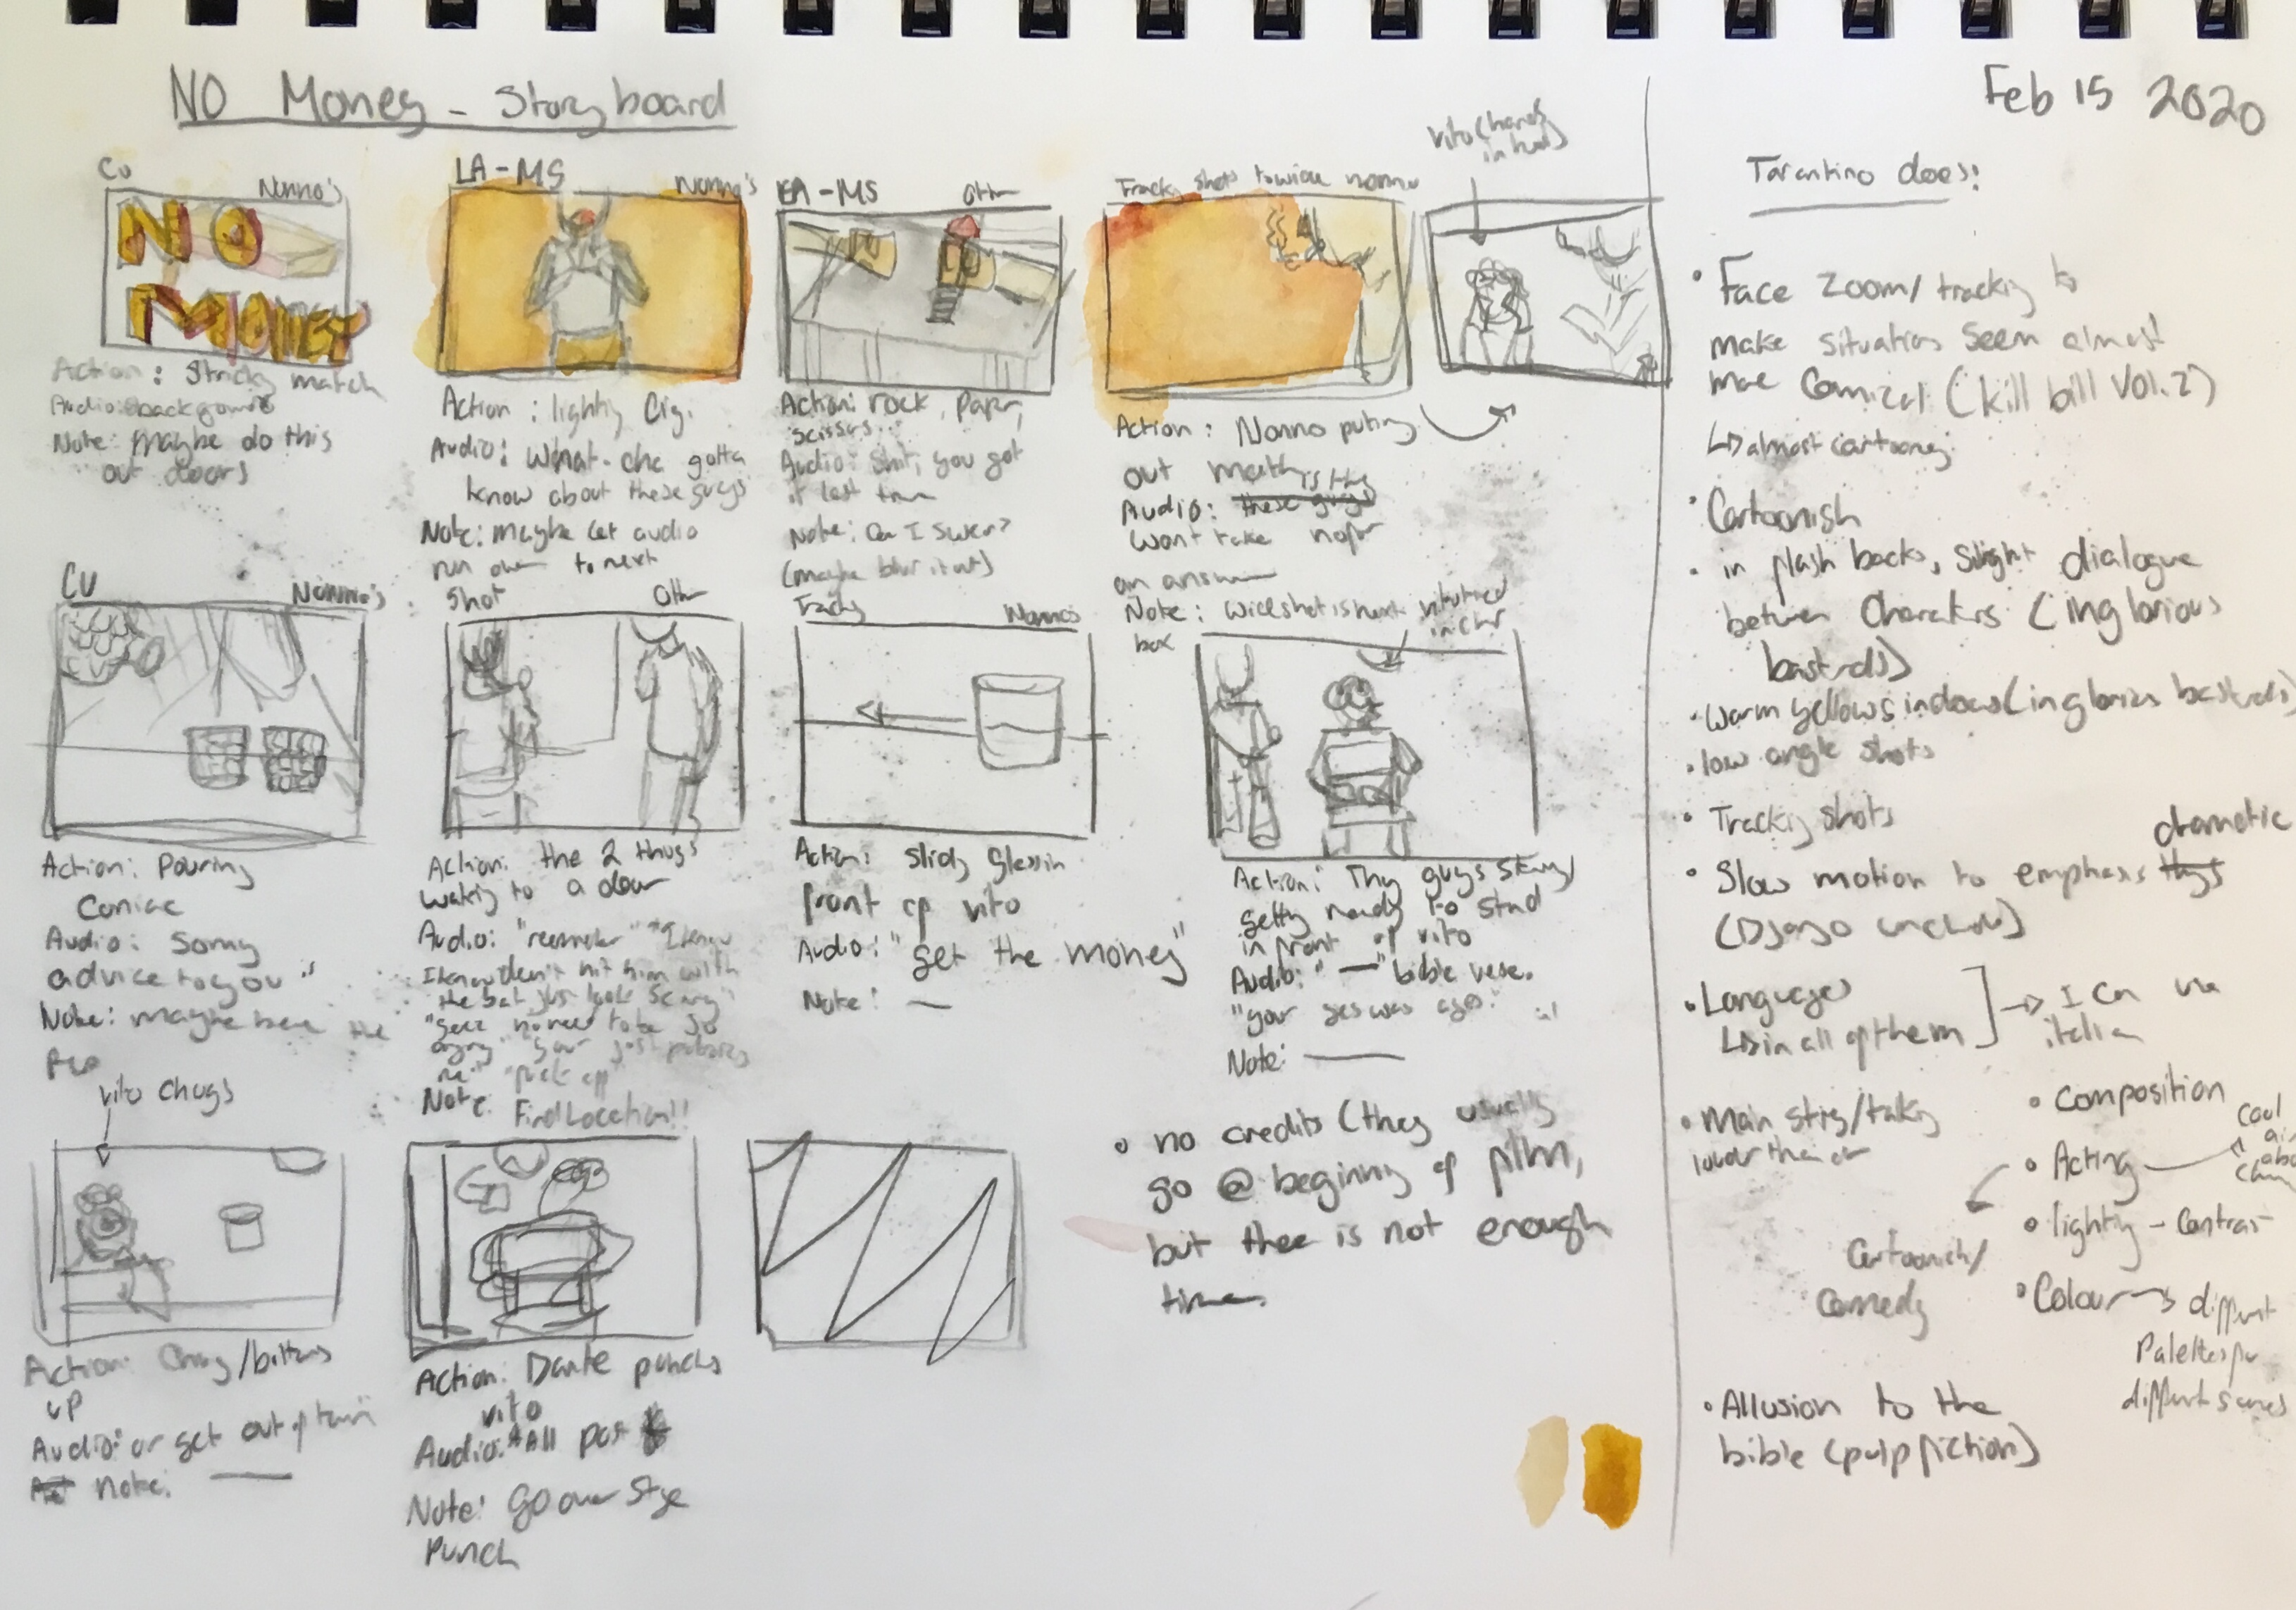 NO Money - Storyboard
Feb 15 2020
CU
Nonno's
NO
MONEY
Action: Stricky match
Audio: background
Note: maybe do this
out doors
LA-MS
Nonno's
Action: lighty Cig.
Audio: What-che gotta
know about these guys
Note: maybe let audio
run over to next
shot
EA-MS
Other
Action: rock, paper,
scissors...
Audio: Shit, you got
it last time
Note: Can I swear?
(maybe blur it out)
Tracky shots to wide nonno
Vito (hands
in head)
Action: Nonno puting
out match
Audio: these guys is they
wont take no for
an answer
Note: wide shot is next
box
CU
Nonno's
Action: Pouring
Coniac
Audio: Somy
advice to you"
Note: maybe have the
Other
Action: the 2 thugs
walking to a door
Audio: "remember" "I know
I know don't hit him with
the bat just look scary"
"geez no need to be so
angry"
Note: Find Location!!
Tracky
Nonno's
Action: slidy glass in
front of vito
Audio: "get the money"
Note: —
vito tied
in chair
Action: Thy guys stany/
getty ready to stand
in front of vito
Audio: " — " bible verse.
Note: —
vito chugs
Action: Chug/bottoms
up
Audio: or get out of town
note: —
Action: Dante punches
vito
Audio: "All past
Note: Go over stge
Punch
• no credits (they usually
go @ beginning of film,
but thee is not enough
time.
Tarantino does:
• Face Zoom/tracky to
make situation seem almost
more Comical (kill bill Vol. 2)
↳ almost cartooney
• Cartoonish
• in flash backs, slight dialogue
between Characters (inglorious
bastrds)
• warm yellows indoors (inglorious bastrds)
• low angle shots
• Tracky shots
• Slow motion to emphasis thgs dramatic
(Django unchained)
• Languages
↳ in all of them → I can use
italian
• Main sitig/talky
lower than other
• Composition
• Acting
Cool
Cartoonish/
Comedy
• lighty - Contrast
• Colour → different
Palettes for
different scenes
• Allusion to the
bible (pulp fiction)